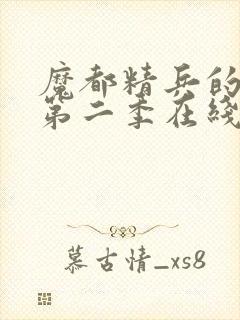 魔都精兵的
第二季在线
慕古情_xs8